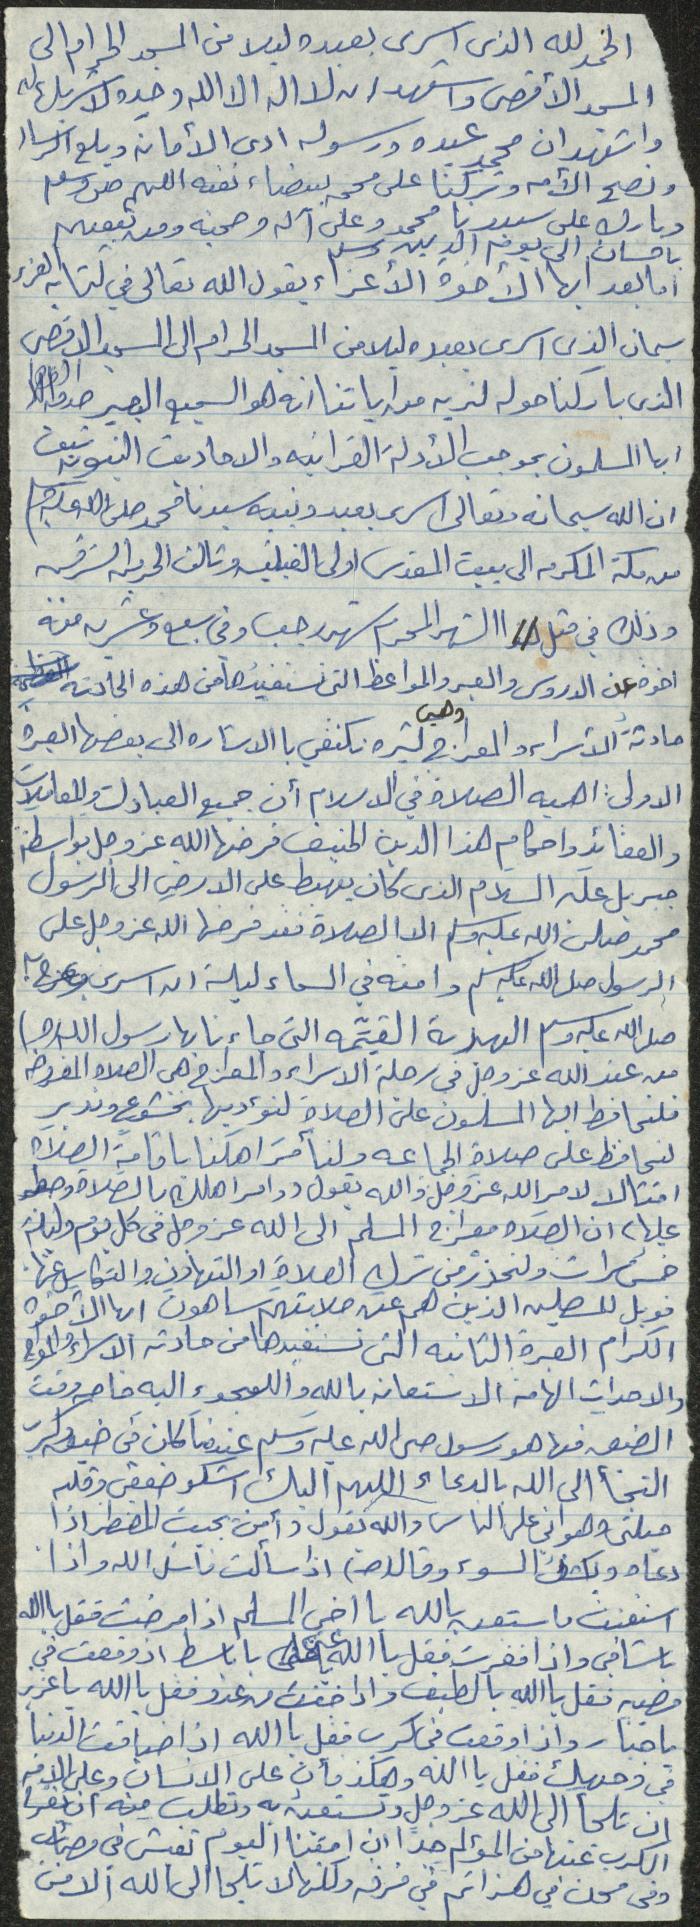 الحمد لله الذي اسرى بعبده ليلا من المسجد الحرام الى
المسجد الأقصى واشهد ان لا اله الا الله وحده لا شريك له
واشهد ان محمد عبده ورسوله ادى الأمانه وبلغ الرساله
ونصح الأمه وتركنا على محجه بيضاء نقيه اللهم صلى وسلم
وبارك على سيدنا محمد وعلى آله وصحبه ومن تبعهم
باحسان الى يوم الدين وسلم
اما بعد ايها الأخوة الأعزاء يقول الله تعالى في كتابه العزيز
سبحان الذي اسرى بعبده ليلا من المسجد الحرام الى المسجد الاقصى
الذي باركنا حوله لنريه من اياتنا انه هو السميع البصير صدق الله
ايها المسلمون بموجب الأدلة القرانيه والاحاديث النبويه ثبت
ان الله سبحانه وتعالى اسرى بعبده ونبيه سيدنا محمد صلى الله عليه
من مكة المكرمه الى بيت المقدس اولى القبلتين وثالث الحرمين الشريفين
وذلك في مثل هذا الشهر المحرم شهر رجب وفي سبع وعشرين منه
اخوة عن الدروس والعبر والمواعظ التي نستفيدها من هذه الحادثه العظيمه
حادثة الأسراء والمعراج وهي كثيره نكتفي بالاشاره الى بعضها العبرة
الاولى: اهميه الصلاة في الاسلام أن جميع العبادات والمعاملات
والعقائد واحكام هذا الدين الحنيف فرضها الله عز وجل بواسطة
جبريل عليه السلام الذي كان يهبط على الارض الى الرسول
محمد صلى الله عليه وسلم الا الصلاة فقد فرضها الله عز وجل على
الرسول صلى الله عليه وسلم وامته في السماء ليلة ان اسرى وعرج به
صلى الله عليه وسلم الهدية القيّمه التي جاءنا بها رسول الله (ص)
من عند الله عز وجل في رحلة الاسراء والمعراج هي الصلاه المفروضه
فلنحافظ ايها المسلمون على الصلاة لنؤديها بخشوع وتدبر
لنحافظ على صلاة الجماعه ولنأمر اهلنا باقامة الصلاه
امتثالا لامر الله عز وجل والله يقول وامر اهلك بالصلاة واصطبر
عليها، ان الصلاه معراج المسلم الى الله عز وجل في كل يوم وليلة
خمس مرات ولنحذر من ترك الصلاة او التهاون والتكاسل عنها
فويل للمصلين الذين هم عن صلاتهم ساهون ايها الأخوة
الكرام العبرة الثانيه التي نستفيدها من حادثه الاسراء والمعراج
والاحداث الهامه الاستعانه بالله واللجوء اليه خاصه وقت
الضيق فها هو رسول صلى الله عليه وسلم عندما كان في ضيق وكرب
التجأ الى الله بالدعاء اللهم اليك اشكو ضعفي وقلة
حيلتي وهواني على الناس والله يقول وأمن يجيب المضطر اذا
دعاه ويكشف السوء وقال (ص) اذا سألت فاسئل الله واذا
استعنت فاستعن بالله يا اخي المسلم اذا مرضت فقل يا الله
يا شافي واذا فقرت فقل يا الله يا غني يا باسط اذ وقعت في
مصيبه فقل يا الله يا لطيف واذا خفت من عدو فقل يا الله يا عزيز
يا جبار واذا وقعت في كرب فقل يا الله اذا ضاقت الدنيا
في وجهك فقل يا الله وهكذا فأن على الانسان وعلى الامه
ان تلجأ الى الله عز وجل وتستعين به وتطلب منه ان يفرج
الكرب عنها من المؤلم جدا ان امتنا اليوم تعيش في مصائب
وفي محن في هزائم في فرقه ولكنها لا تلجأ الى الله الا من